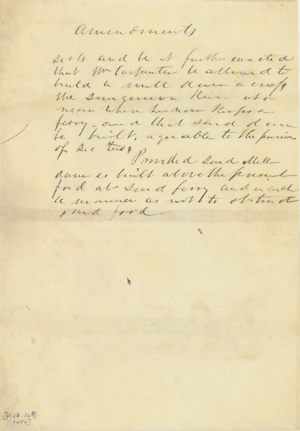 Amendments
sec 4 and be it further enacted
that Wm Carpenter be allowed to
build a mill dam across
the River at or
near where he now keeps a
ferry - and that said dam
be built, agreable to the provisions
of sec two
Provided said Mill
dam is built above the present
ford at said ferry and in such
a manner as not to obstruct
said ford